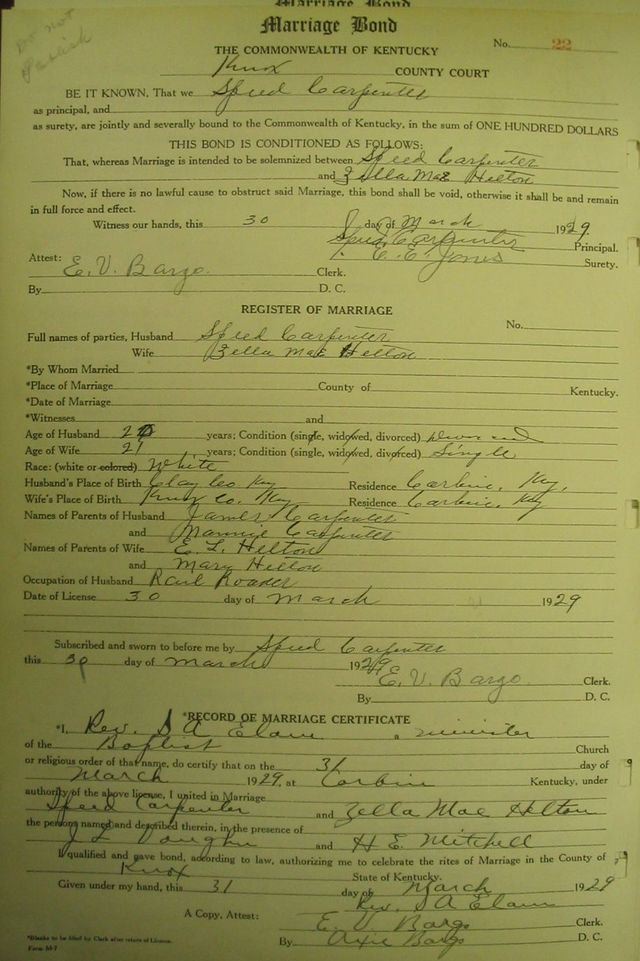 Marriage Bond
Do not
Publish
Marriage Bond
No. 22
THE COMMONWEALTH OF KENTUCKY
Knox COUNTY COURT
BE IT KNOWN, That we Speed Carpenter
as principal, and
as surety, are jointly and severally bound to the Commonwealth of Kentucky, in the sum of ONE HUNDRED DOLLARS
THIS BOND IS CONDITIONED AS FOLLOWS:
That, whereas Marriage is intended to be solemnized between Speed Carpenter
and Zella Mae Helton
Now, if there is no lawful cause to obstruct said Marriage, this bond shall be void, otherwise it shall be and remain
in full force and effect.
Witness our hands, this 30 day of March 1929
Speed Carpenter Principal.
E. C. Jones Surety.
Attest: E. V. Bargo. Clerk.
By D. C.
REGISTER OF MARRIAGE
No.
Full names of parties, Husband Speed Carpenter
Wife Zella Mae Helton
*By Whom Married
*Place of Marriage County of Kentucky.
*Date of Marriage
*Witnesses and
Age of Husband years; Condition (single, widowed, divorced) divorced
Age of Wife 21 years; Condition (single, widowed, divorced) Single
Race: (white or colored) White
Husband's Place of Birth Clay Co Ky Residence Corbin, Ky,
Wife's Place of Birth Knox Co. Ky Residence Corbin, Ky
Names of Parents of Husband James Carpenter
and Mannie Carpenter
Names of Parents of Wife E. L. Helton
and Mary Helton
Occupation of Husband Rail Roader
Date of License 30 day of March 1929
Subscribed and sworn to before me by Speed Carpenter
this 30 day of March 1929
E. V. Bargo Clerk.
By D. C.
*RECORD OF MARRIAGE CERTIFICATE
*I, Rev. S A Elam a minister
of the Baptist Church
or religious order of that name, do certify that on the 31 day of
March 1929, at Corbin Kentucky, under
authority of the above license, I united in Marriage
Speed Carpenter and Zella Mae Helton
the persons named and described therein, in the presence of
J L Vaughn and H E Mitchell
I qualified and gave bond, according to law, authorizing me to celebrate the rites of Marriage in the County of
Knox State of Kentucky.
Given under my hand, this 31 day of March 1929
Rev. S A Elam
A Copy, Attest: E. V. Bargo Clerk.
By Orxie Bargo D. C.
*Blanks to be filled by Clerk after return of License.
Form M-7